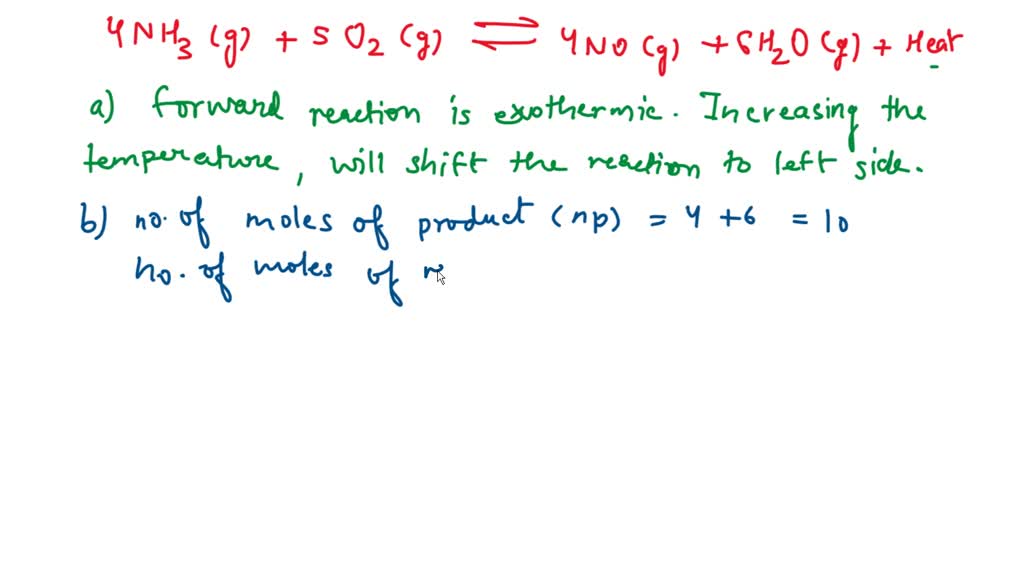 4NH3 (g) + 5 O2 (g) ⇌ 4NO (g) + 6H2O (g) + Heat
a) Forward reaction is exothermic. Increasing the
temperature, will shift the reaction to left side.
b) no. of moles of product (np) = 4 + 6 = 10
no. of moles of r